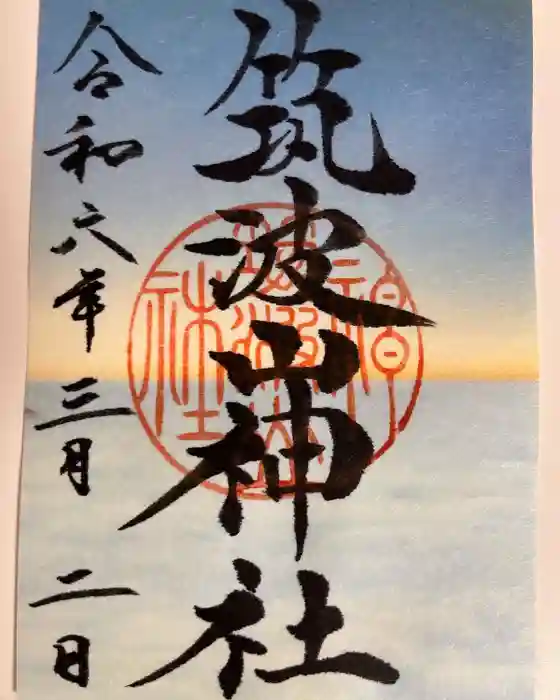 筑波山神社
令和六年三月二日
筑波山神社